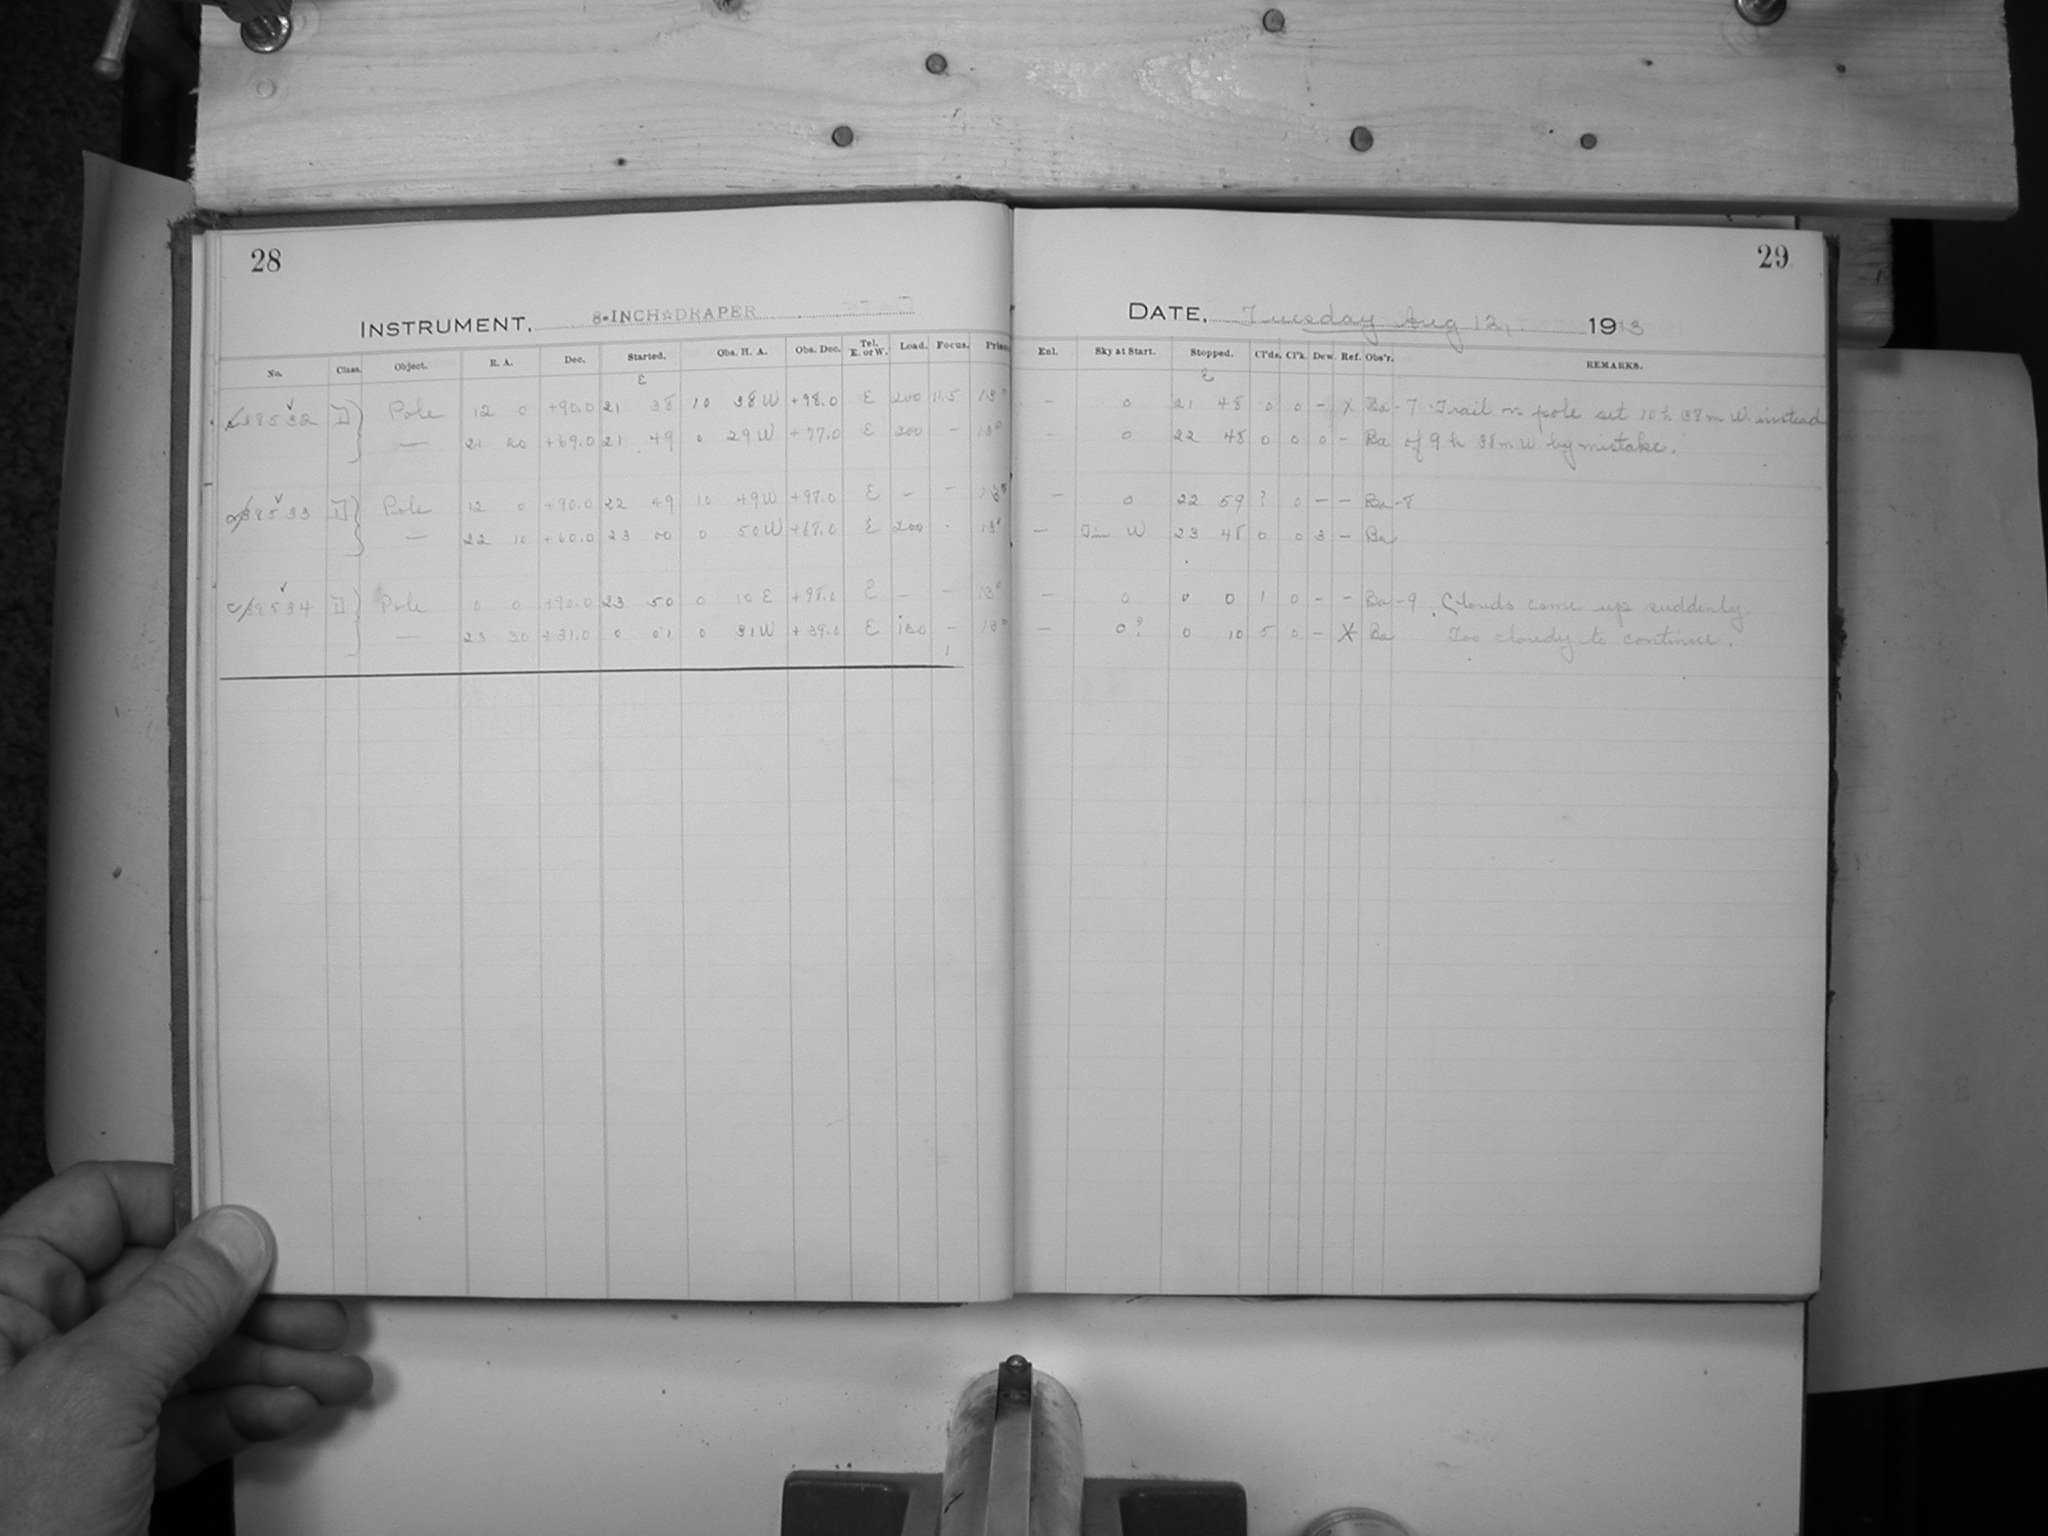 28
INSTRUMENT. 8-INCH DRAPER
No. Class. Object. R. A. Dec. Started. Obs. H. A. Obs. Dec. Tel. E. or W. Load. Focus. Prism
E
38532 II Pole 12 0 +90.0 21 38 10 38 W +98.0 E 200 11.5 13°
— 21 20 +69.0 21 49 0 29 W +77.0 E 200 - 13°
38533 II Pole 12 0 +90.0 22 49 10 49 W +98.0 E - - 13°
— 22 10 +60.0 23 00 0 50 W +68.0 E 200 - 13°
38534 II Pole 0 0 +90.0 23 50 0 10 E +98.0 E - - 13°
— 23 30 +31.0 0 01 0 31 W +39.0 E - 13°
29
DATE. Tuesday Aug 12, 1913
Enl. Sky at Start. Stopped. Cl'ds. Cl'k. Dew. Ref. Obs'r. REMARKS.
E
- 0 21 48 0 0 - X Ba - 7 Trail on pole set 10 h 38 m W. instead
- 0 22 48 0 0 0 - Ba of 9 h 38 m W. by mistake.
- 0 22 59 ? 0 - - Ba - 8
- W 23 48 0 0 3 - Ba
- 0 0 0 1 0 - - Ba - 9 Clouds come up suddenly.
- 0? 0 10 5 0 - X Ba Too cloudy to continue.